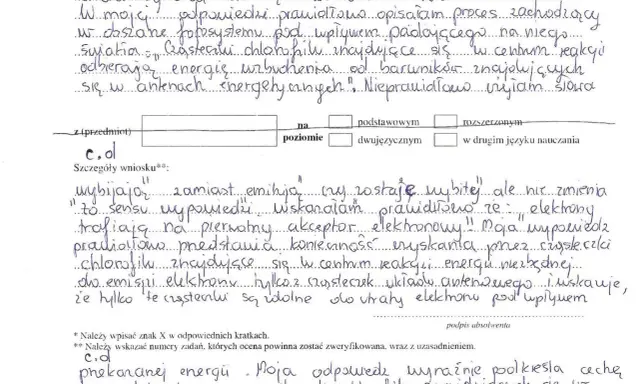 W mojej odpowiedzi prawidłowo opisałam proces zachodzący
w obszarze fotosystemu pod wpływem padającego na niego
światła: „Cząsteczki chlorofilu znajdujące się w centrum reakcji
odbierają energię wzbudzenia od barwników znajdujących
się w antenach energetycznych". Nieprawidłowo użyłam słowa
z (przedmiot) na poziomie podstawowym rozszerzonym
dwujęzycznym w drugim języku nauczania
c.d
Szczegóły wniosku**:
„wybijają" zamiast „emitują" czy „zostaje wybity" ale nie zmienia
to sensu wypowiedzi, wskazałam prawidłowo że: „elektrony
trafiają na pierwotny akceptor elektronowy". Moja wypowiedź
prawidłowo przedstawia konieczność uzyskania przez cząsteczki
chlorofilu znajdujące się w centrum reakcji energii niezbędnej
do emisji elektronu tylko z cząsteczek układów antenowego i wskazuje,
że tylko te cząsteczki są zdolne do utraty elektronu pod wpływem
podpis absolwenta
* Należy wpisać znak X w odpowiednich kratkach.
** Należy wskazać numery zadań, których ocena powinna zostać zweryfikowana, wraz z uzasadnieniem.
c.d
przekazanej energii. Moja odpowiedź wyraźnie podkreśla cechę